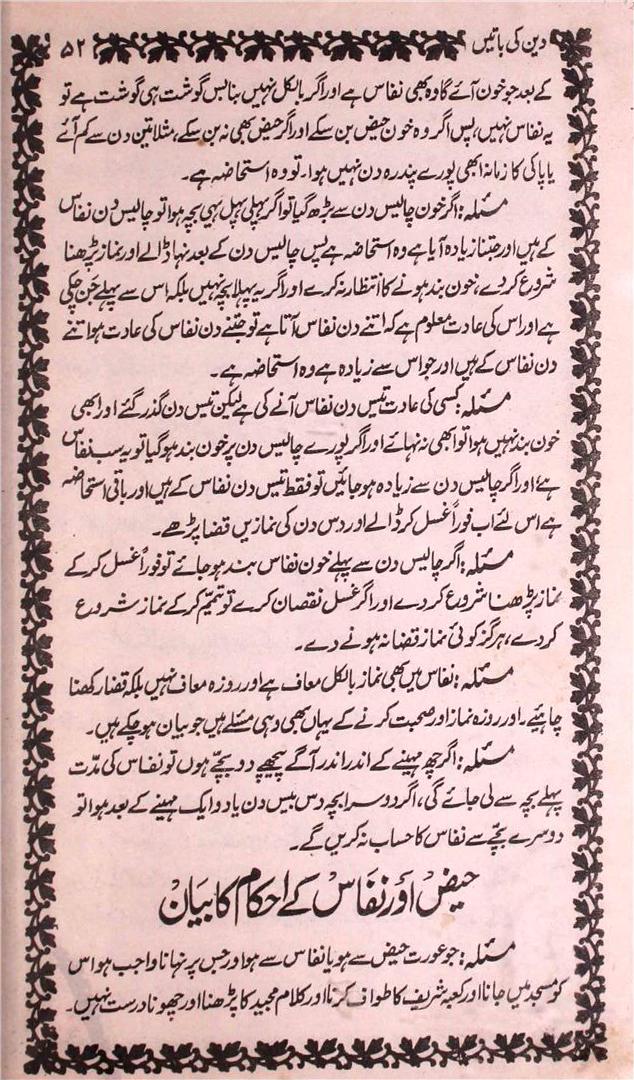 دین کی باتیں ۵۲
کے بعد جو خون آئے گا وہ بھی نفاس ہے اور اگر بالکل نہیں بنا بس گوشت ہی گوشت ہے تو
یہ نفاس نہیں، پس اگر وہ خون حیض بن سکے اور اگر حیض بھی نہ بن سکے، مثلاً تین دن سے کم آئے
یا پاکی کا زمانہ ابھی پورے پندرہ دن نہیں ہوا۔ تو وہ استحاضہ ہے۔
مسئلہ: اگر خون چالیس دن سے بڑھ گیا تو اگر پہلی پہل یہی بچہ ہوا تو چالیس دن نفاس
کے ہیں اور جتنا زیادہ آیا ہے وہ استحاضہ ہے پس چالیس دن کے بعد نہا ڈالے اور نماز پڑھنا
شروع کر دے، خون بند ہونے کا انتظار نہ کرے اور اگر یہ پہلا بچہ نہیں بلکہ اس سے پہلے جَن چکی
ہے اور اس کی عادت معلوم ہے کہ اتنے دن نفاس آتا ہے تو جتنے دن نفاس کی عادت ہو اتنے
دن نفاس کے ہیں اور جو اس سے زیادہ ہے وہ استحاضہ ہے۔
مسئلہ: کسی کی عادت تیس دن نفاس آنے کی ہے لیکن تیس دن گذر گئے اور ابھی
خون بند نہیں ہوا تو ابھی نہ نہائے اور اگر پورے چالیس دن پر خون بند ہو گیا تو یہ سب نفاس
ہے اور اگر چالیس دن سے زیادہ ہو جائیں تو فقط تیس دن نفاس کے ہیں اور باقی استحاضہ
ہے اس لئے اب فوراً غسل کر ڈالے اور دس دن کی نمازیں قضا پڑھے۔
مسئلہ: اگر چالیس دن سے پہلے خون نفاس بند ہو جائے تو فوراً غسل کر کے
نماز پڑھنا شروع کر دے اور اگر غسل نقصان کرے تو تیمّم کر کے نماز شروع
کر دے، ہرگز کوئی نماز قضا نہ ہونے دے۔
مسئلہ: نفاس میں بھی نماز بالکل معاف ہے اور روزہ معاف نہیں بلکہ قضا رکھنا
چاہیئے۔ اور روزہ نماز اور صحبت کرنے کے یہاں بھی وہی مسئلے ہیں جو بیان ہو چکے ہیں۔
مسئلہ: اگر چھ مہینے کے اندر اندر آگے پیچھے دو بچّے ہوں تو نفاس کی مدّت
پہلے بچہ سے لی جائے گی، اگر دوسرا بچہ دس بیس دن یا دو ایک مہینے کے بعد ہوا تو
دوسرے بچّے سے نفاس کا حساب نہ کریں گے۔
حیض اور نفاس کے احکام کا بیان
مسئلہ: جو عورت حیض سے ہو یا نفاس سے ہو اور جس پر نہانا واجب ہو اس
کو مسجد میں جانا اور کعبہ شریف کا طواف کرنا اور کلام مجید کا پڑھنا اور چھونا درست نہیں۔